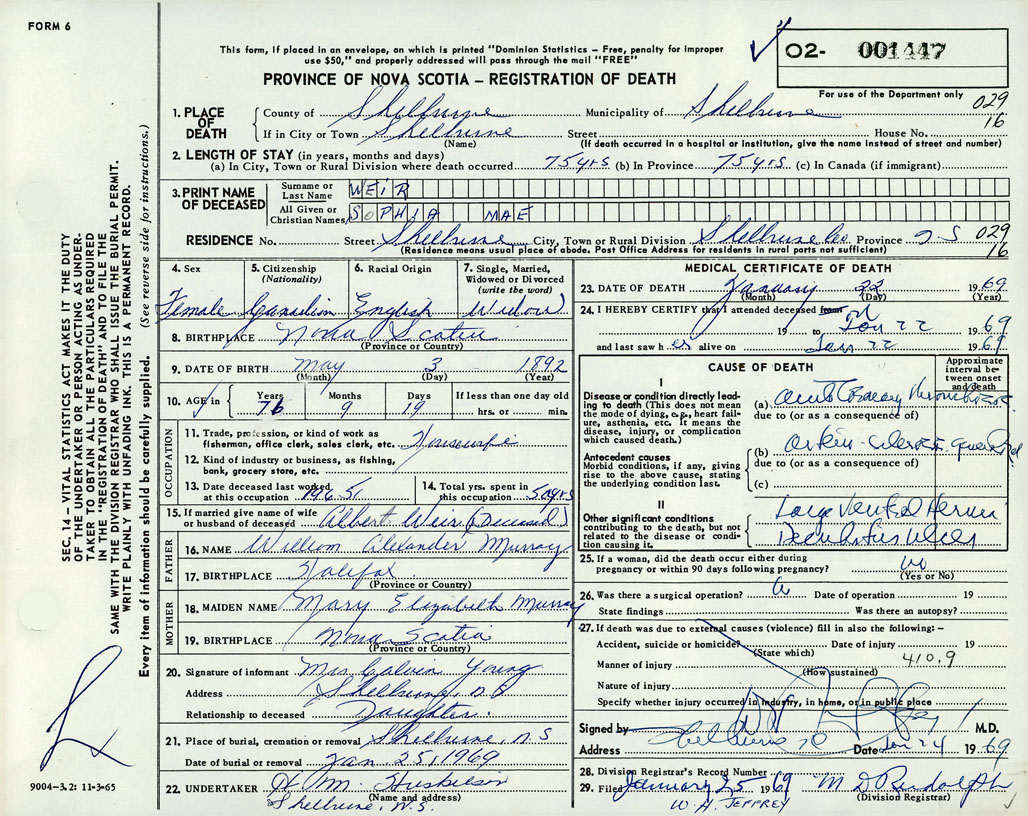 FORM 6
This form, if placed in an envelope, on which is printed "Dominion Statistics – Free, penalty for improper
use $50," and properly addressed will pass through the mail "FREE"
O2- 001447
For use of the Department only
PROVINCE OF NOVA SCOTIA – REGISTRATION OF DEATH
029
16
1. PLACE OF DEATH
County of Shelburne Municipality of Shelburne
If in City or Town Shelburne Street House No.
(Name) (If death occurred in a hospital or institution, give the name instead of street and number)
2. LENGTH OF STAY (in years, months and days)
(a) In City, Town or Rural Division where death occurred 75 yrs (b) In Province 75 yrs. (c) In Canada (if immigrant)
3. PRINT NAME OF DECEASED
Surname or Last Name WEIR
All Given or Christian Names SOPHIA MAE
RESIDENCE No. Street Shelburne City, Town or Rural Division Shelburne Co. Province N S 029
(Residence means usual place of abode. Post Office Address for residents in rural parts not sufficient) 16
4. Sex Female
5. Citizenship (Nationality) Canadian
6. Racial Origin English
7. Single, Married, Widowed or Divorced (write the word) Widow
8. BIRTHPLACE Nova Scotia
(Province or Country)
9. DATE OF BIRTH May 3 1892
(Month) (Day) (Year)
10. AGE in Years 76 Months 9 Days 19 If less than one day old hrs. or min.
OCCUPATION
11. Trade, profession, or kind of work as fisherman, office clerk, sales clerk, etc. Housewife
12. Kind of industry or business, as fishing, bank, grocery store, etc.
13. Date deceased last worked at this occupation
14. Total yrs. spent in this occupation 50 yrs
15. If married give name of wife or husband of deceased Albert Weir (Deceased)
FATHER
16. NAME William Alexander Murray
17. BIRTHPLACE Halifax
(Province or Country)
MOTHER
18. MAIDEN NAME Mary Elizabeth Murray
19. BIRTHPLACE Nova Scotia
(Province or Country)
20. Signature of informant Mrs Calvin Young
Address Shelburne, N.S
Relationship to deceased Daughter.
21. Place of burial, cremation or removal Shelburne, N S
Date of burial or removal Jan. 25, 1969
22. UNDERTAKER
(Name and address)
Shelburne, N.S.
MEDICAL CERTIFICATE OF DEATH
23. DATE OF DEATH January 22 1969
(Month) (Day) (Year)
24. I HEREBY CERTIFY that I attended deceased from
19 to Jan 22 1969
and last saw her alive on Jan 22 1969
CAUSE OF DEATH
Approximate interval between onset and death
I
Disease or condition directly leading to death (This does not mean the mode of dying, e.g., heart failure, asthenia, etc. It means the disease, injury, or complication which caused death.)
(a) Coronary Thrombosis
due to (or as a consequence of)
Antecedent causes
Morbid conditions, if any, giving rise to the above cause, stating the underlying condition last.
(b)
due to (or as a consequence of)
(c)
II
Other significant conditions contributing to the death, but not related to the disease or condition causing it.
Large Ventral Hernia
Decubitus Ulcers
25. If a woman, did the death occur either during pregnancy or within 90 days following pregnancy? No
(Yes or No)
26. Was there a surgical operation? Date of operation 19
State findings Was there an autopsy?
27. If death was due to external causes (violence) fill in also the following:–
Accident, suicide or homicide? Date of injury 19
(State which)
Manner of injury 410.9
(How sustained)
Nature of injury
Specify whether injury occurred in industry, in home, or in public place
Signed by M.D.
Address Shelburne Date Jan 24 1969
28. Division Registrar's Record Number
29. Filed January 25 1969 M D Rudolph
(Division Registrar)
W. A. JEFFREY
SEC. 14 – VITAL STATISTICS ACT MAKES IT THE DUTY
OF THE UNDERTAKER OR PERSON ACTING AS UNDERTAKER TO OBTAIN ALL THE PARTICULARS REQUIRED
IN THE "REGISTRATION OF DEATH" AND TO FILE THE
SAME WITH THE DIVISION REGISTRAR WHO SHALL ISSUE THE BURIAL PERMIT.
WRITE PLAINLY WITH UNFADING INK. THIS IS A PERMANENT RECORD.
Every item of information should be carefully supplied. (See reverse side for instructions.)
9004-3.2: 11-3-65